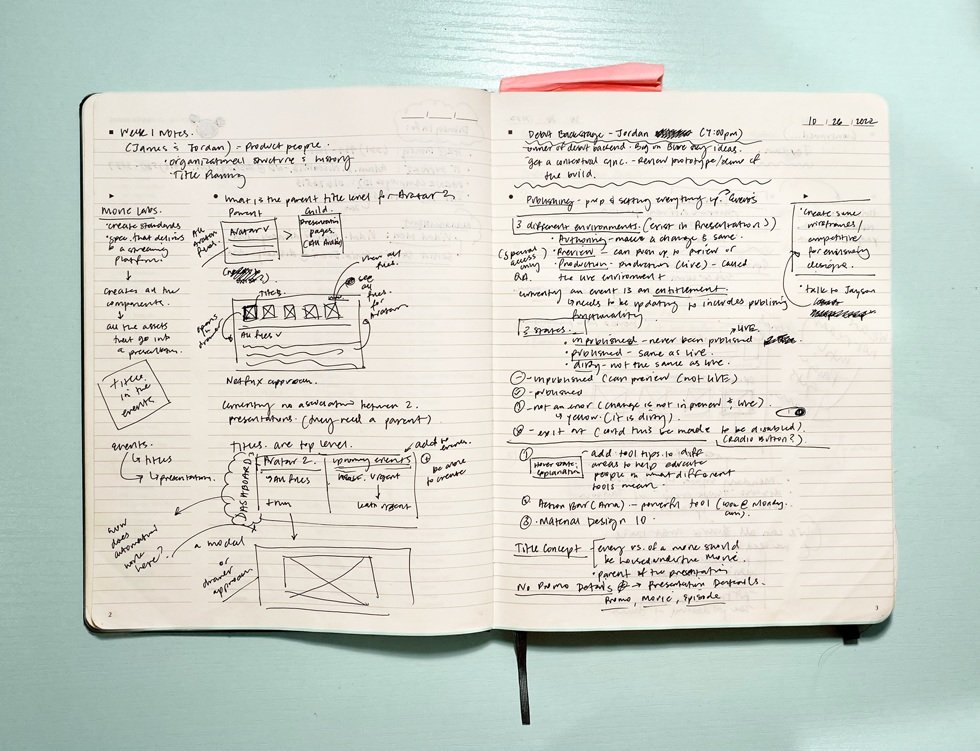 Week 1 Notes.
(James & Jordan) - Product people.
• organizational structure & history
• Title Planning
Movie Labs.
• create standards
spec. that defines
a streaming
platform
creates all the
components.
all the assets
that go into
a presentation.
titles
in the
events
events.
titles
presentation.
how
does
automation
work
here?
• What is the parent title level for Avatar 2
Parent
child.
Avatar
Presentation
pages.
>
view all
files.
titles
see
all
files for
Avatar
opens
in a
drawer
All files
Netflix approach.
currently no association between 2
presentations. (they need a parent)
Titles are top level.
DASHBOARD
Avatar 2
All files
upcoming events
urgent
least urgent
add to
be able
to create
a modal
or
drawer
approach
2
10 26 2022
• Debut Backstage - Jordan (7:00pm)
owner of debut backend. Big on Blue sky ideas.
get a contextual sync. - Review prototype/demo of
the build.
• Publishing - prep & setting everything up. events
3 different environments. (exist in Presentations)
• Authoring - makes a change & save.
(special access only) • Preview - can push up to preview or
QA. • Production - production (live) - called
the live environment
currently an event is an entitlement.
needs to be updating to includes publishing
functionality
• Create some
wireframes/
competitive
for envisioning
designs.
• talk to Jayson
3 states.
• unpublished - never been published
LIVE.
• published - same as live.
• dirty - not the same as live.
- unpublished (can preview (not LIVE)
published
! - not an error (change is not in preview & live)
yellow. (it is dirty)
- exit (could this be made to be disabled)
(Radio Button?)
1
Hover state
explanation
add tool tips to diff
areas to help educate
people on what different
tools mean.
2 Action Bar (Ama) - powerful tool
3 • Material Design 10
Title Concept - every vs. of a movie should
be housed under the movie.
• parent of the presentation
No Promo Details → Presentation Details.
Promo, Movie, Episode
3